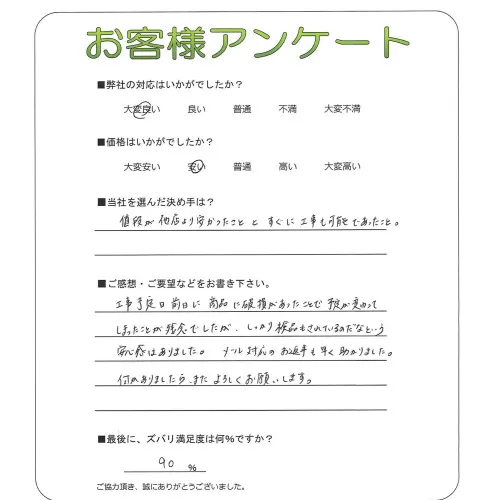 お客様アンケート
■弊社の対応はいかがでしたか？
大変良い 良い 普通 不満 大変不満
■価格はいかがでしたか？
大変安い 安い 普通 高い 大変高い
■当社を選んだ決め手は？
値段が他店より安かったこと と すぐに工事も可能であったこと。
■ご感想・ご要望などをお書き下さい。
工事予定日前日に 商品に破損があったことで 予定が変わって
しまったことが残念でしたが、しっかり検品もされているのだなという
安心感はありました。 メール対応の お返事も早く助かりました。
何かありましたら、また よろしくお願いします。
■最後に、ズバリ満足度は何%ですか？
90 %
ご協力頂き、誠にありがとうございました。